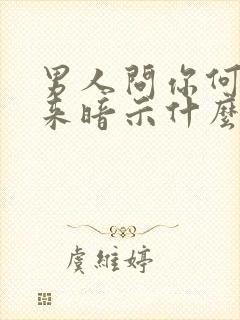 男人問你何
來暗示什麼
虞維婷